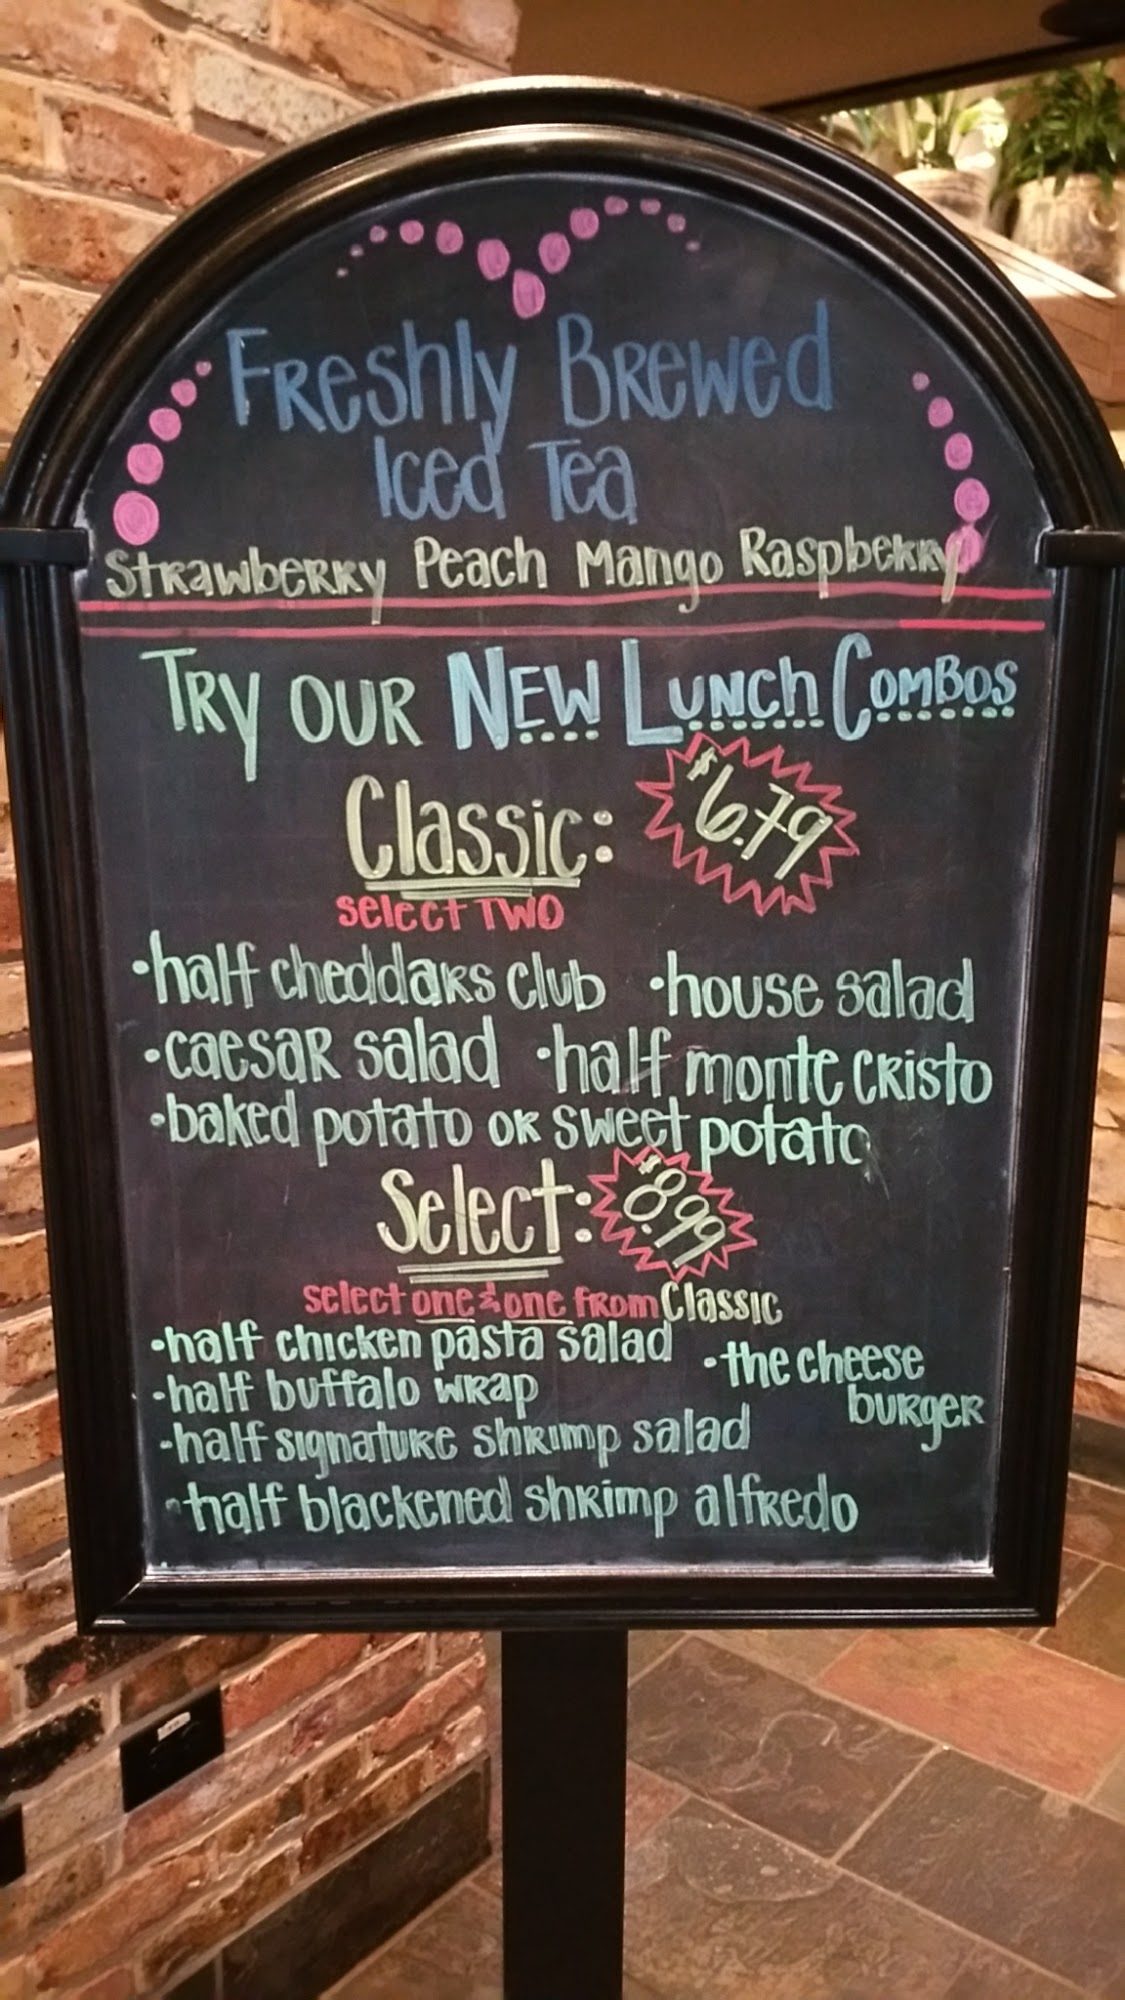 Freshly Brewed
Iced Tea
Strawberry Peach Mango Raspberry
Try our New Lunch Combos
Classic: $6.79
select TWO
•half cheddars club •house salad
•caesar salad •half monte cristo
•baked potato or sweet potato
Select: $8.99
select one & one from Classic
•half chicken pasta salad •the cheese
•half buffalo wrap burger
•half signature shrimp salad
•half blackened shrimp alfredo